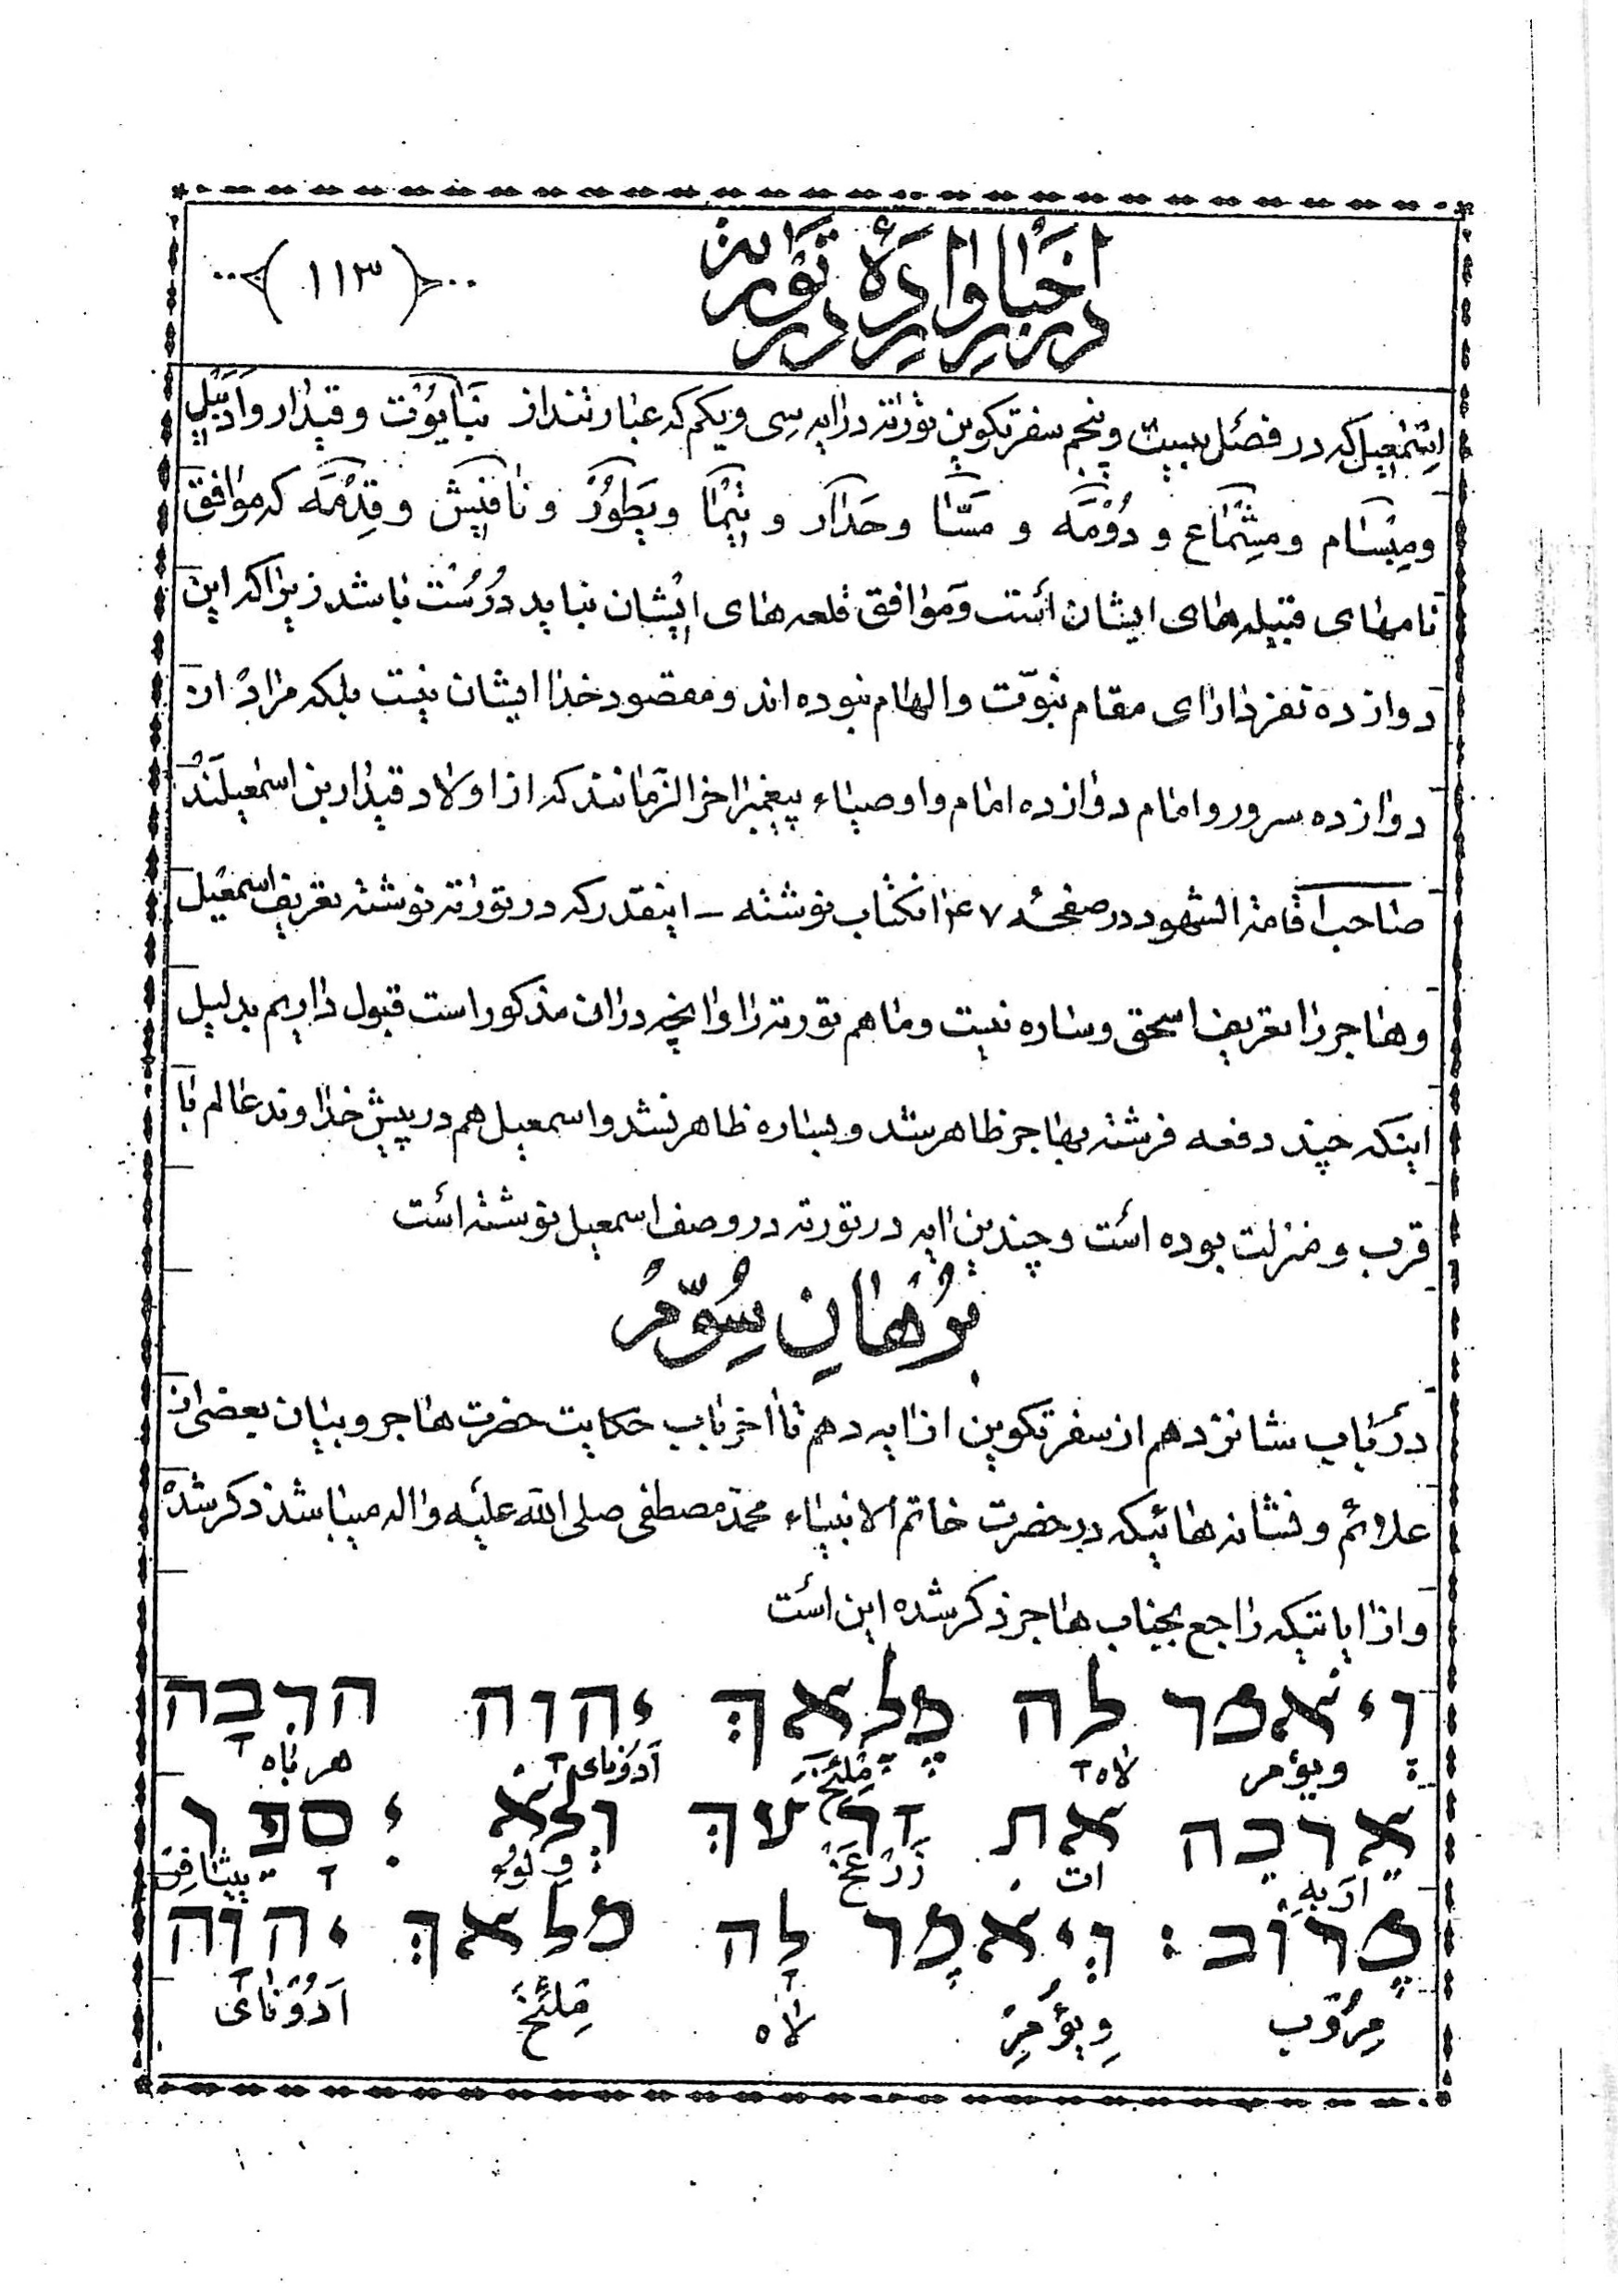 در اخبار وارده در تورات
(۱۱۳)
اِسْمٰعیل که در فصل بیست و پنجم سفر تکوین تورٰته در ایه سی و یکم که عبارتند از نَبایُوْت و قیدار وَاَدَبْئیل
و مِبْسٰام و مِشْمٰاع و دُوْمَه و مَسّٰا و حَدٰار و تِیْمٰا و یَطُوْر و نٰافیِشْ و قِدْمَه که موافق
نامهای قبیلههای ایشان است و موافق قلعههای ایشان نباید دُرُسْت باشد زیرا که این
دوازده نفر دارای مقام نبوّت و الهام نبوده اند و مقصود خدا ایشان نیست بلکه مراد ان
دوازده سرور و امام دوازده امام و اوصیاء پیغمبر اخر الزّمانند که از اولاد قیدار بن اسمعیلند
صاحب اقامة الشهود در صفحه ۷۴ انکتاب نوشته – اینقدر که در تورٰته نوشته تعریف اسمعیل
و هاجر را تعریف اسحق و ساره نیست و ما هم تورته را و انچه در ان مذکور است قبول داریم بدلیل
اینکه چند دفعه فرشته بهاجر ظاهر شد و بساره ظاهر نشد و اسمعیل هم در پیش خداوند عالم با
قرب و منزلت بوده است و چندین ایه در تورته در وصف اسمعیل نوشته است
بُرْهٰانِ سِوُّمْ
در باب شانزدهم از سفر تکوین از ایه دهم تا اخر باب حکایت حضرت هاجر و بیان بعضی از
علائم و نشانه هائیکه در حضرت خاتم الانبیاء محمد مصطفی صلی الله علیه و اله میباشد ذکر شده
و از ایاتیکه راجع بجناب هاجر ذکر شده این است
וְיֹאמר לה מַלְאךְ יהוָה הרבָה
ویؤمر لاه مَلئَخ اَدُوْنای هرباه
אַרבֵה את זרְעךְ וְלֹא יִסָפֵר
اربه ات زَرْعَخ وِ لوُء ییسافِر
מֵרֹוב: וְיֹאמֶר לָה מלְאךְ יהוָה
مِرُوْب وِیؤُمِرْ لٰاه مَلئَخَ اَدُوْنٰای